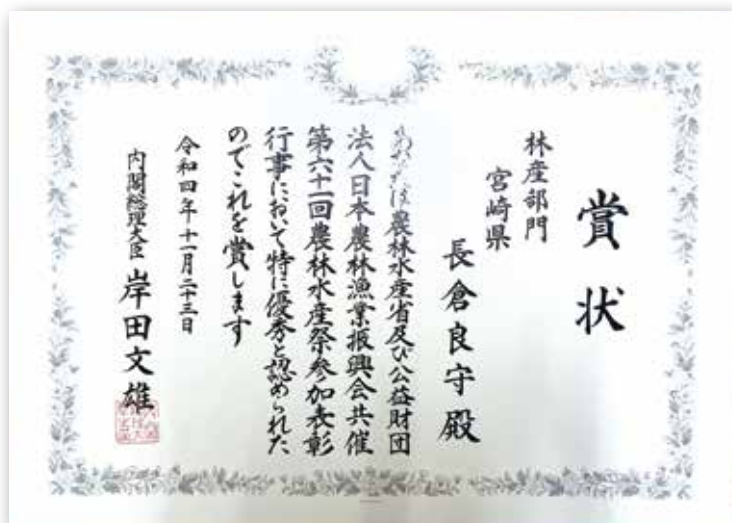 賞状
林産部門
宮崎県
長倉良守殿
あなたは農林水産省及び公益財団
法人日本農林漁業振興会共催
第六十一回農林水産祭参加表彰
行事において特に優秀と認められた
のでこれを賞します
令和四年十一月二十三日
内閣総理大臣 岸田文雄